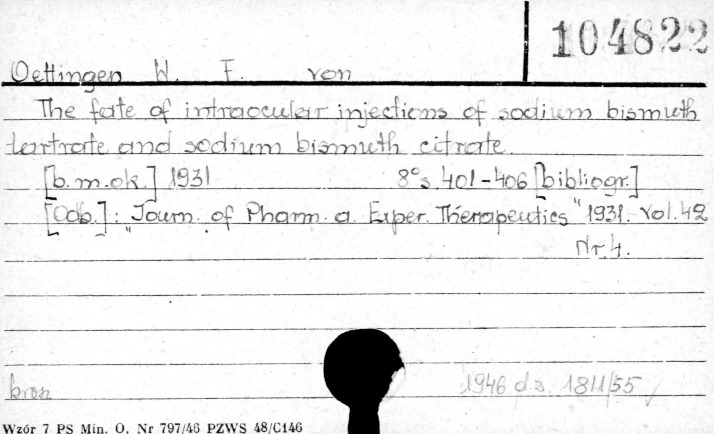 104822
Oettingen W. F. von
The fate of intraocular injections of sodium bismuth
tartrate and sodium bismuth citrate
[b.m.ok.] 1931 8° s. 401-406 [bibliogr.]
[Odb.]: "Journ. of Pharm. a. Exper. Therapeutics" 1931. vol. 42
Nr. 4.
brosz
1946 dz. 1811/55
Wzór 7 PS Min. O. Nr 797/46 PZWS 48/C146